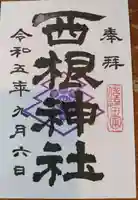 奉拝
西根神社
令和五年九月六日